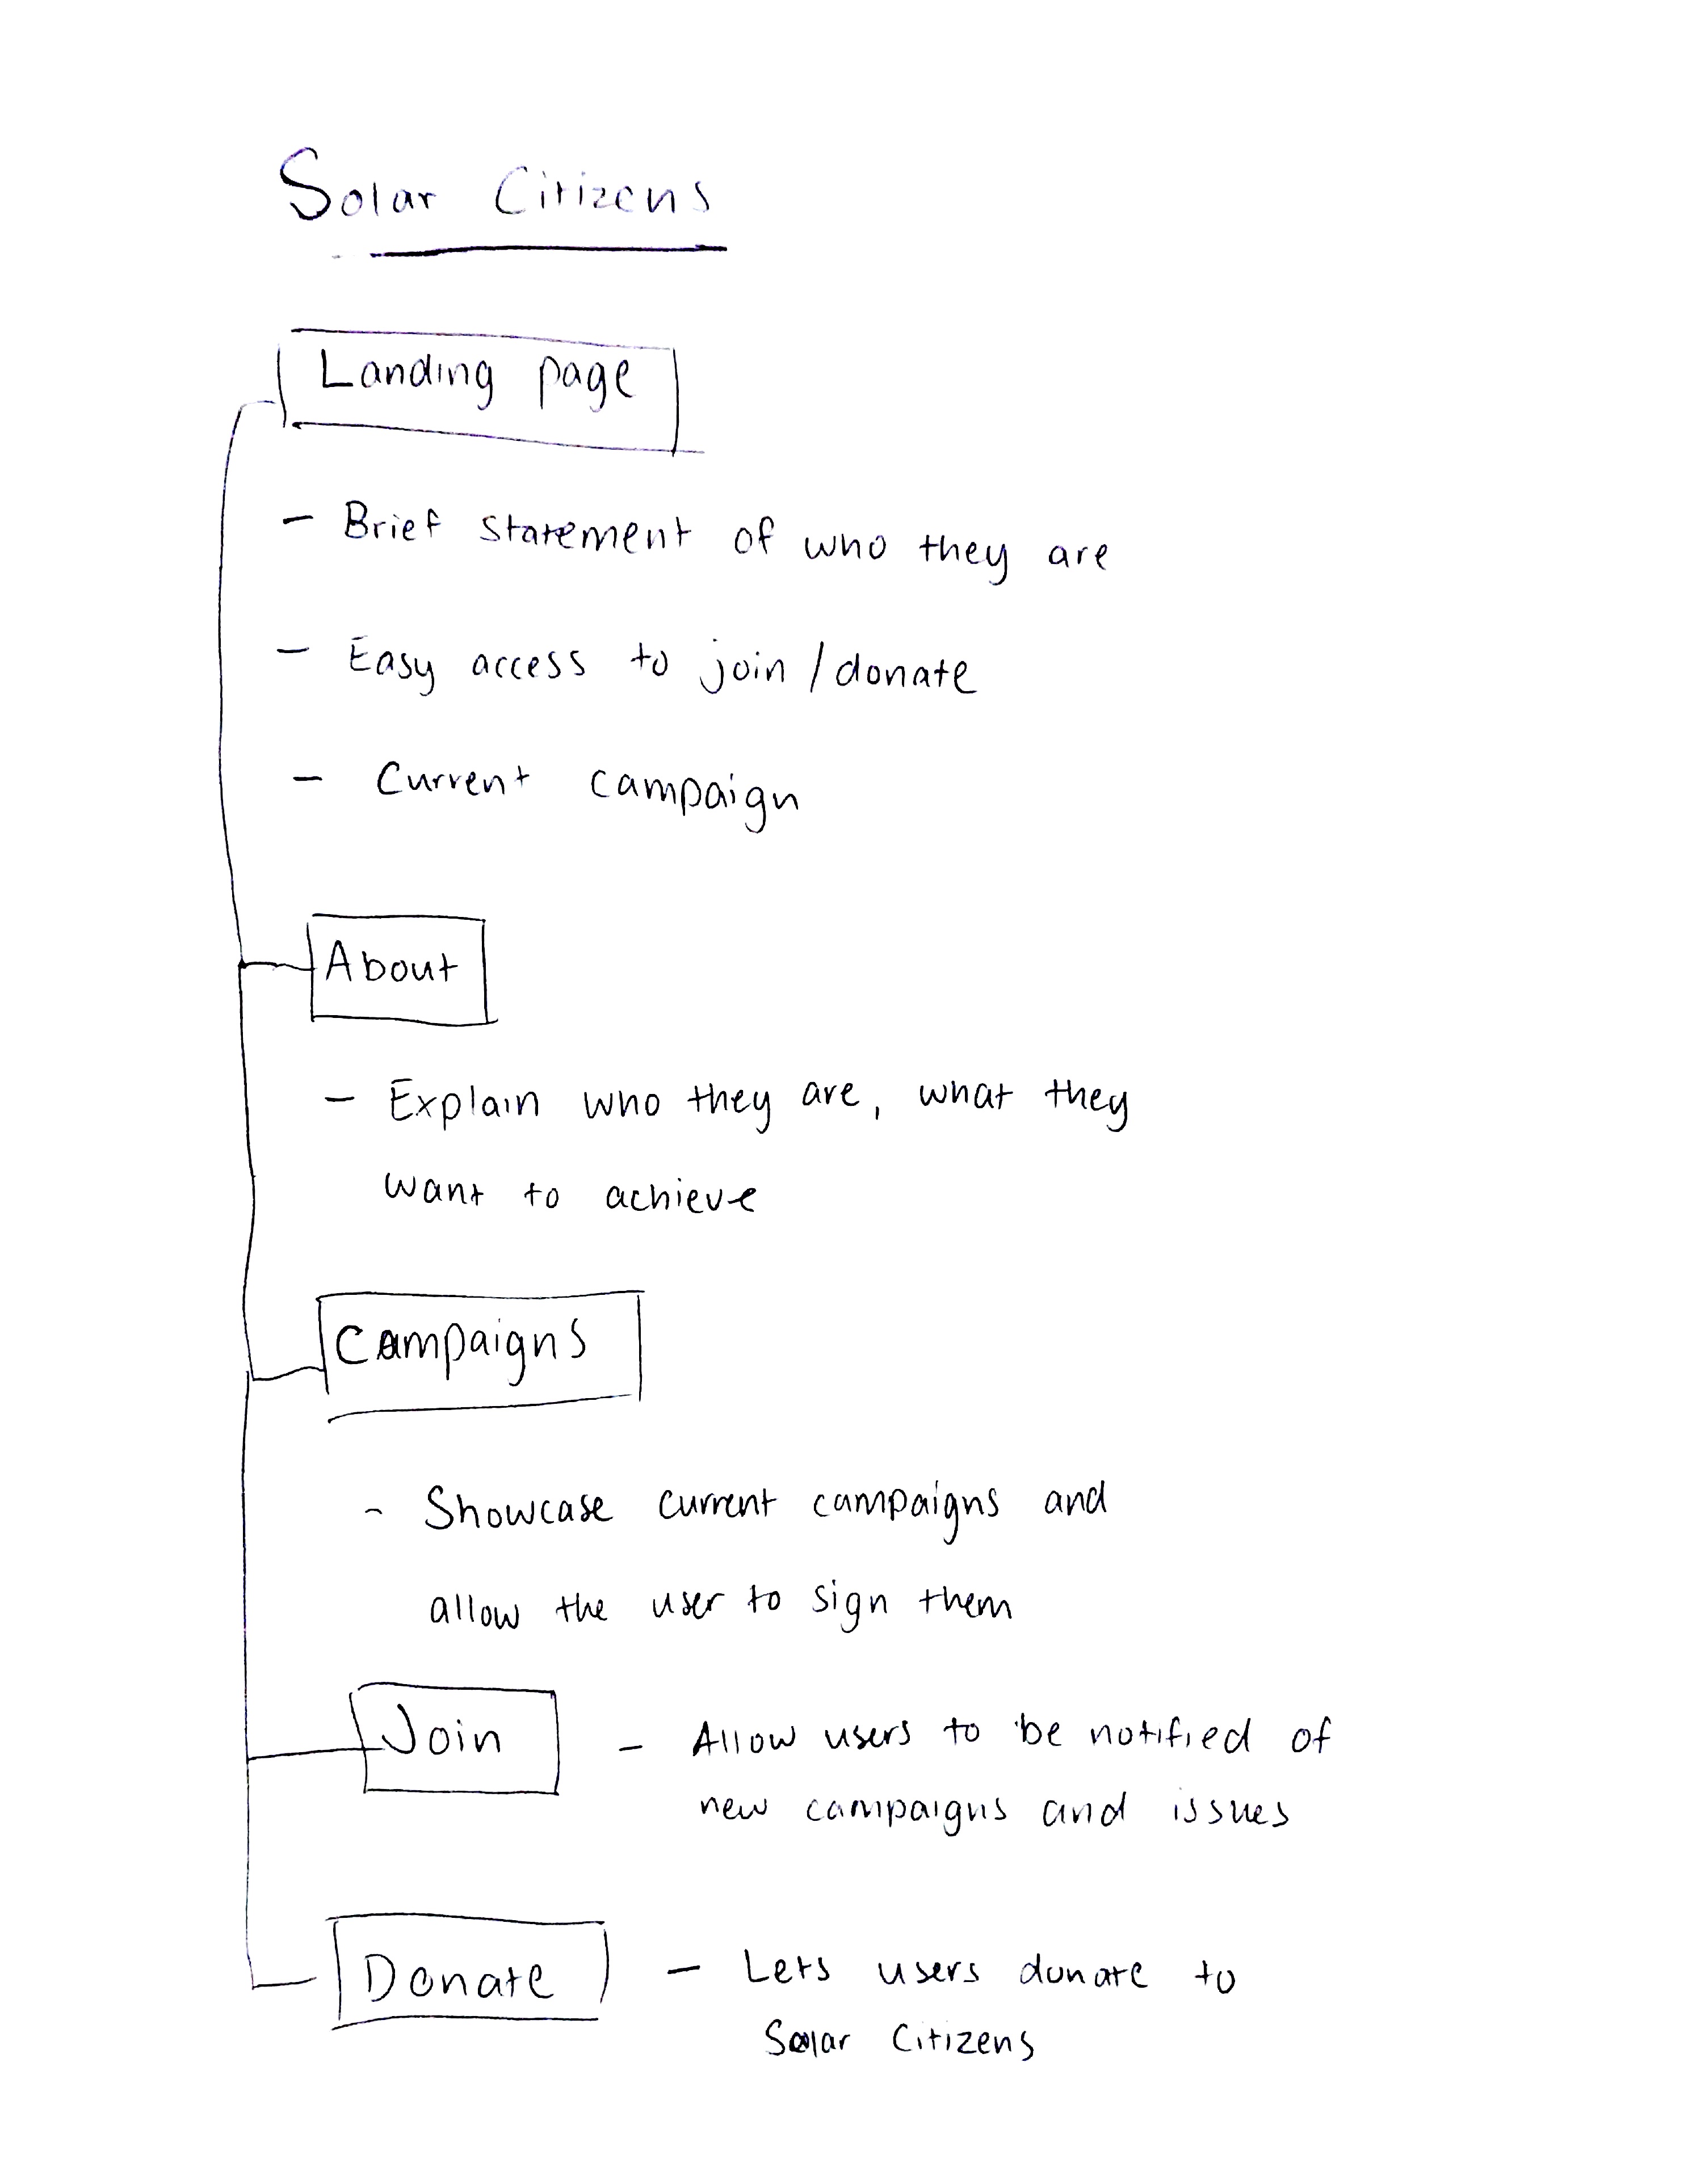 Solar Citizens
Landing page
- Brief statement of who they are
- Easy access to join / donate
- Current campaign
About
- Explain who they are, what they
want to achieve
Campaigns
- Showcase current campaigns and
allow the user to sign them
Join - Allow users to be notified of
new campaigns and issues
Donate - Lets users donate to
Solar Citizens